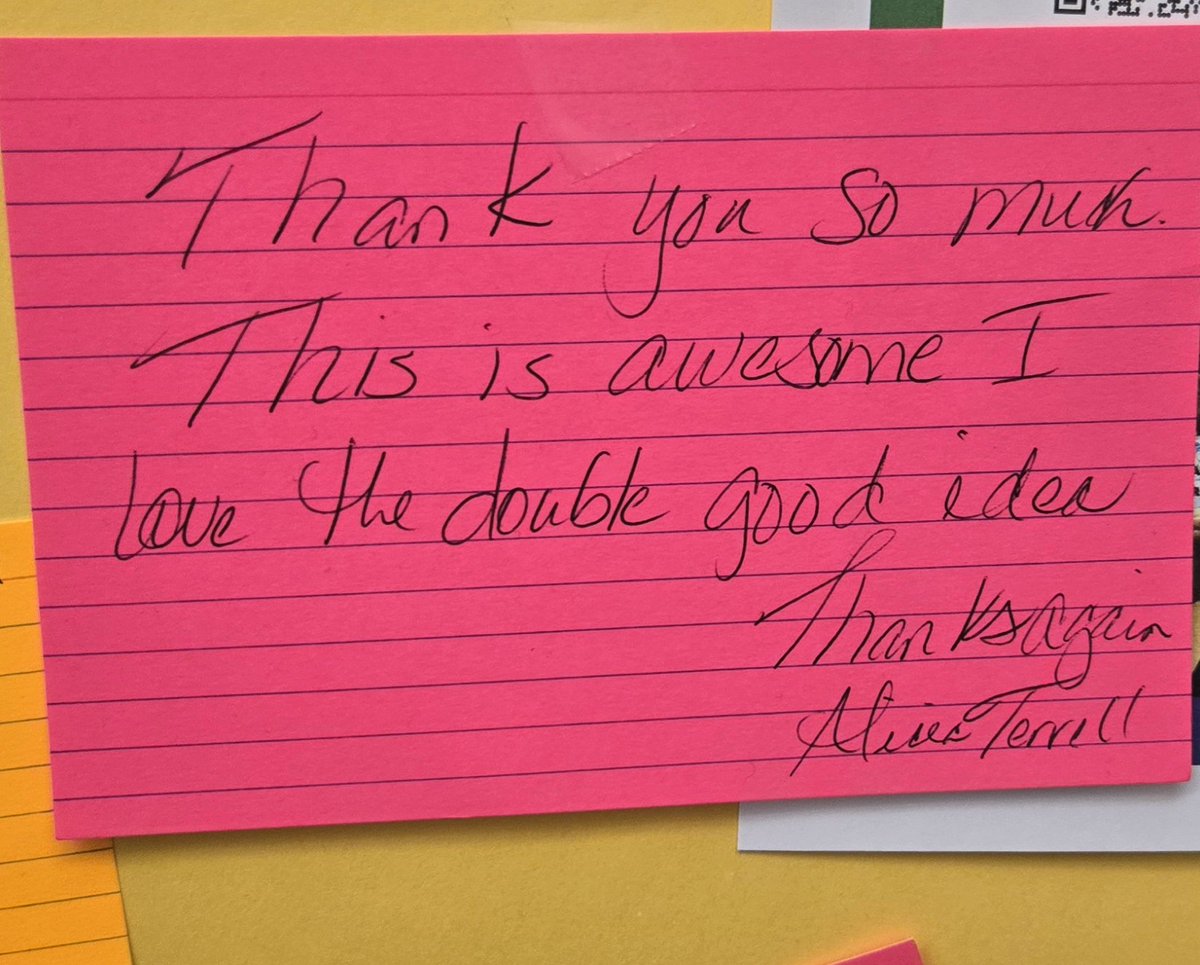 Thank you so much.
This is awesome I
love the double good idea
Thanks again
Terrell